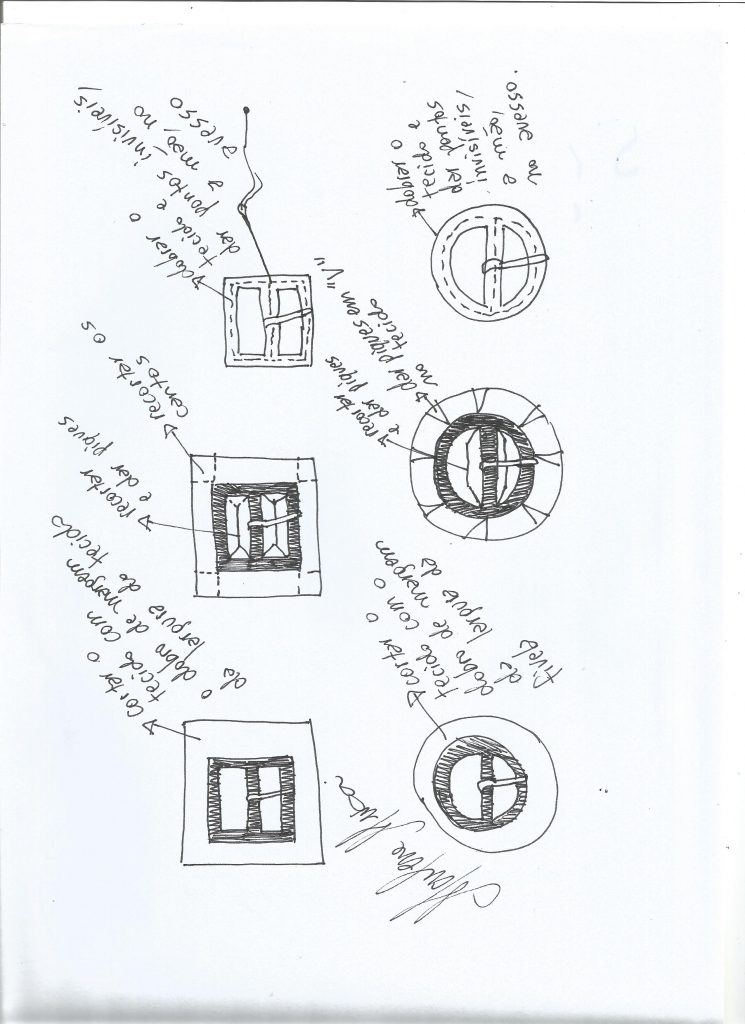 cortar o
tecido com
o dobro de margem
da largura do tecido
recortar
e dar piques
recortar os
cantos
dobrar o
tecido e
dar pontos invisíveis,
a mão, no
avesso
cortar o
tecido com o
dobro de margem
da largura da
fivela
recortar
e dar piques
dar piques em "V"
no tecido
dobrar o
tecido e
dar pontos
invisíveis,
a mão,
no avesso.
Marlene Mukai